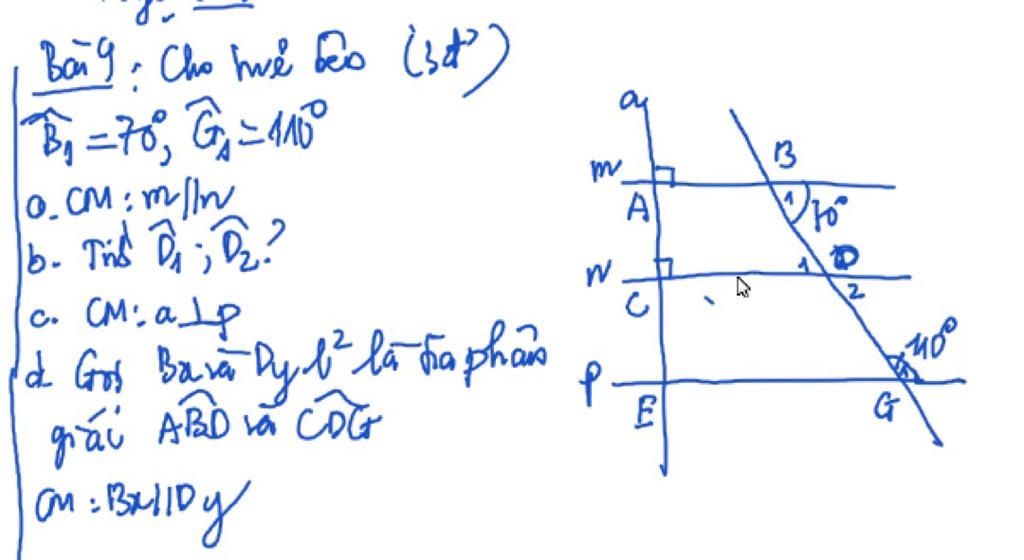 Bài 9: Cho hvẽ bên (3đ)
B̂₁ = 70°, Ĝ₁ = 110°
a. CM: m//n
b. Tính D̂₁; D̂₂?
c. CM: a⊥p
d Gọi Bx và Dy lần lượt là tia phân
giác ABD và CDG
CM: Bx//Dy
a
m
A
B
1
70°
n
C
1
D
2
p
E
110°
1
G